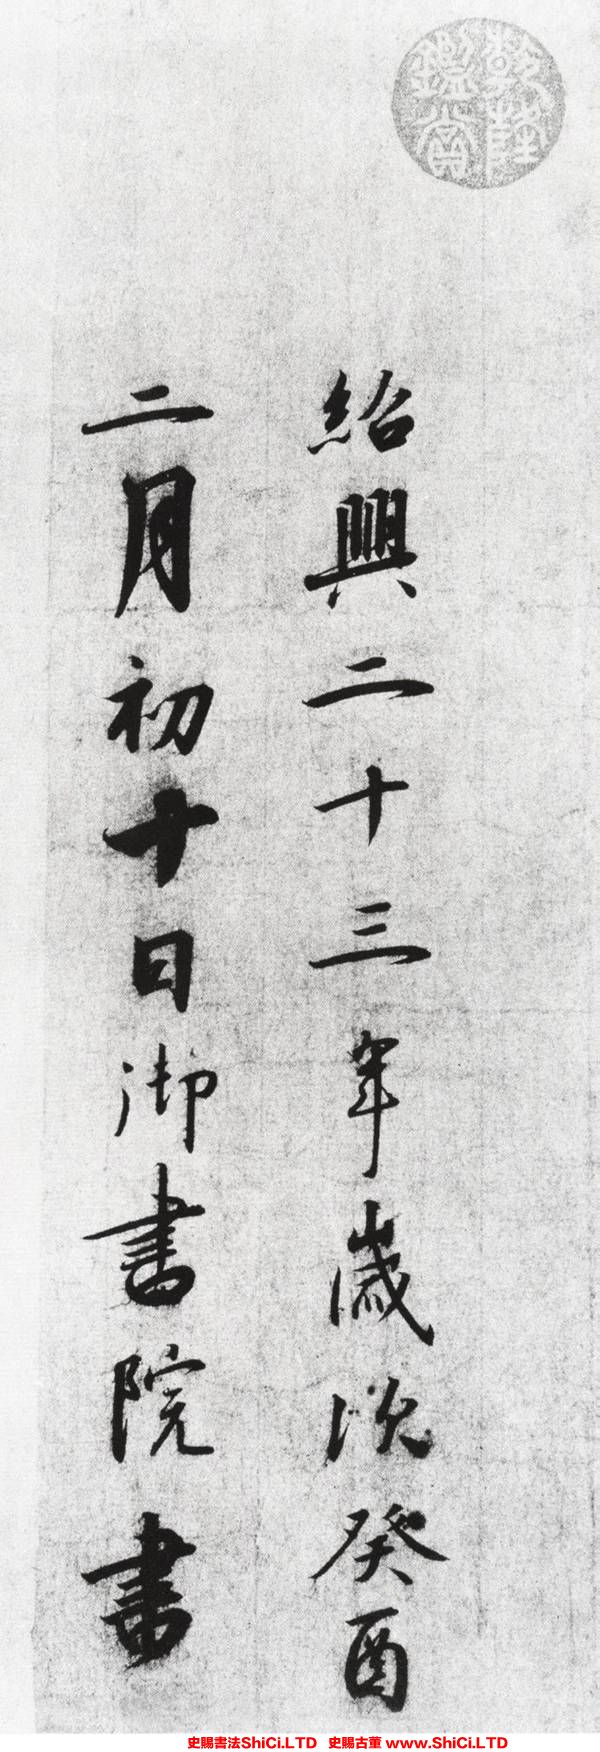 乾隆
鑑賞
紹興二十三年歲次癸酉
二月初十日御書院書
史賜書法ShiCi.LTD 史賜古董 www.ShiCi.LTD